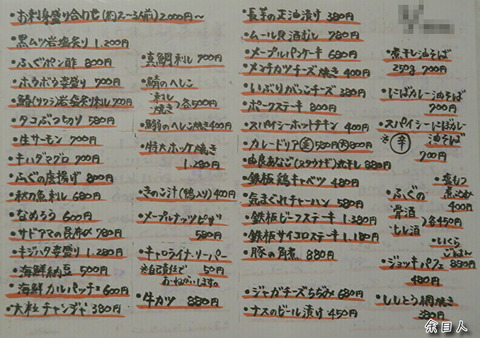 お刺身盛り合わせ(約2〜3人前)2,000円〜
・黒ムツ岩塩炙り 1,200円
・ふぐポン酢 800円
・ホウボウ姿盛り 700円
・鯖(サワラ)岩塩炙り刺し 700円
・タコぶつきり 580円
・生サーモン 700円
・キハダマグロ 700円
・ふぐの唐揚げ 800円
・秋刀魚刺し 680円
・なめろう 600円
・サドアマの昆布〆 780円
・キジハタ姿盛り 1,280円
・海鮮納豆 500円
・海鮮カルパッチョ 600円
・大社チャンジャ 380円
・真鯛刺し 700円
・鯖のへしこ
刺し
焼き 各500円
・鯖のへしこ焼き 400円
・特大ホッケ焼き
1,280円
・きのこ汁(鴨入り) 400円
・メープルナッツピザ
580円
・キャロライナ・リーパー
※自己責任で 50円
おねがいします。
・牛カツ 880円
・長芋の正油漬け 380円
・ムール貝酒むし 780円
・メープルパンケーキ 680円
・メンチカツチーズ焼き 400円
・いぶりがっこチーズ 380円
・ポークステーキ 800円
・スパイシーホットチキン 400円
・カレードリア 小580円 大800円
・由良あなご(スタウナギ)丸干し 880円
・鉄板鶏キャベツ 480円
・気まぐれチャーハン 580円
・鉄板ビーフステーキ 1,380円
・鉄板サイコロステーキ 1,180円
・豚の角煮 880円
・ジャガチーズちぢみ 680円
・ナスのビール漬け 450円
・煮干し油そば
250g 700円
・にぼカレー油そば
700円
・スパイシーにぼカレー
辛 油そば
700円
・ふぐの
骨酒
ヒレ酒 各450円
・鳥もつ
煮込み
400円
・いくら
ごはん
480円
・ジョッキパフェ 880円
・ししとう網焼き
380円
余目人